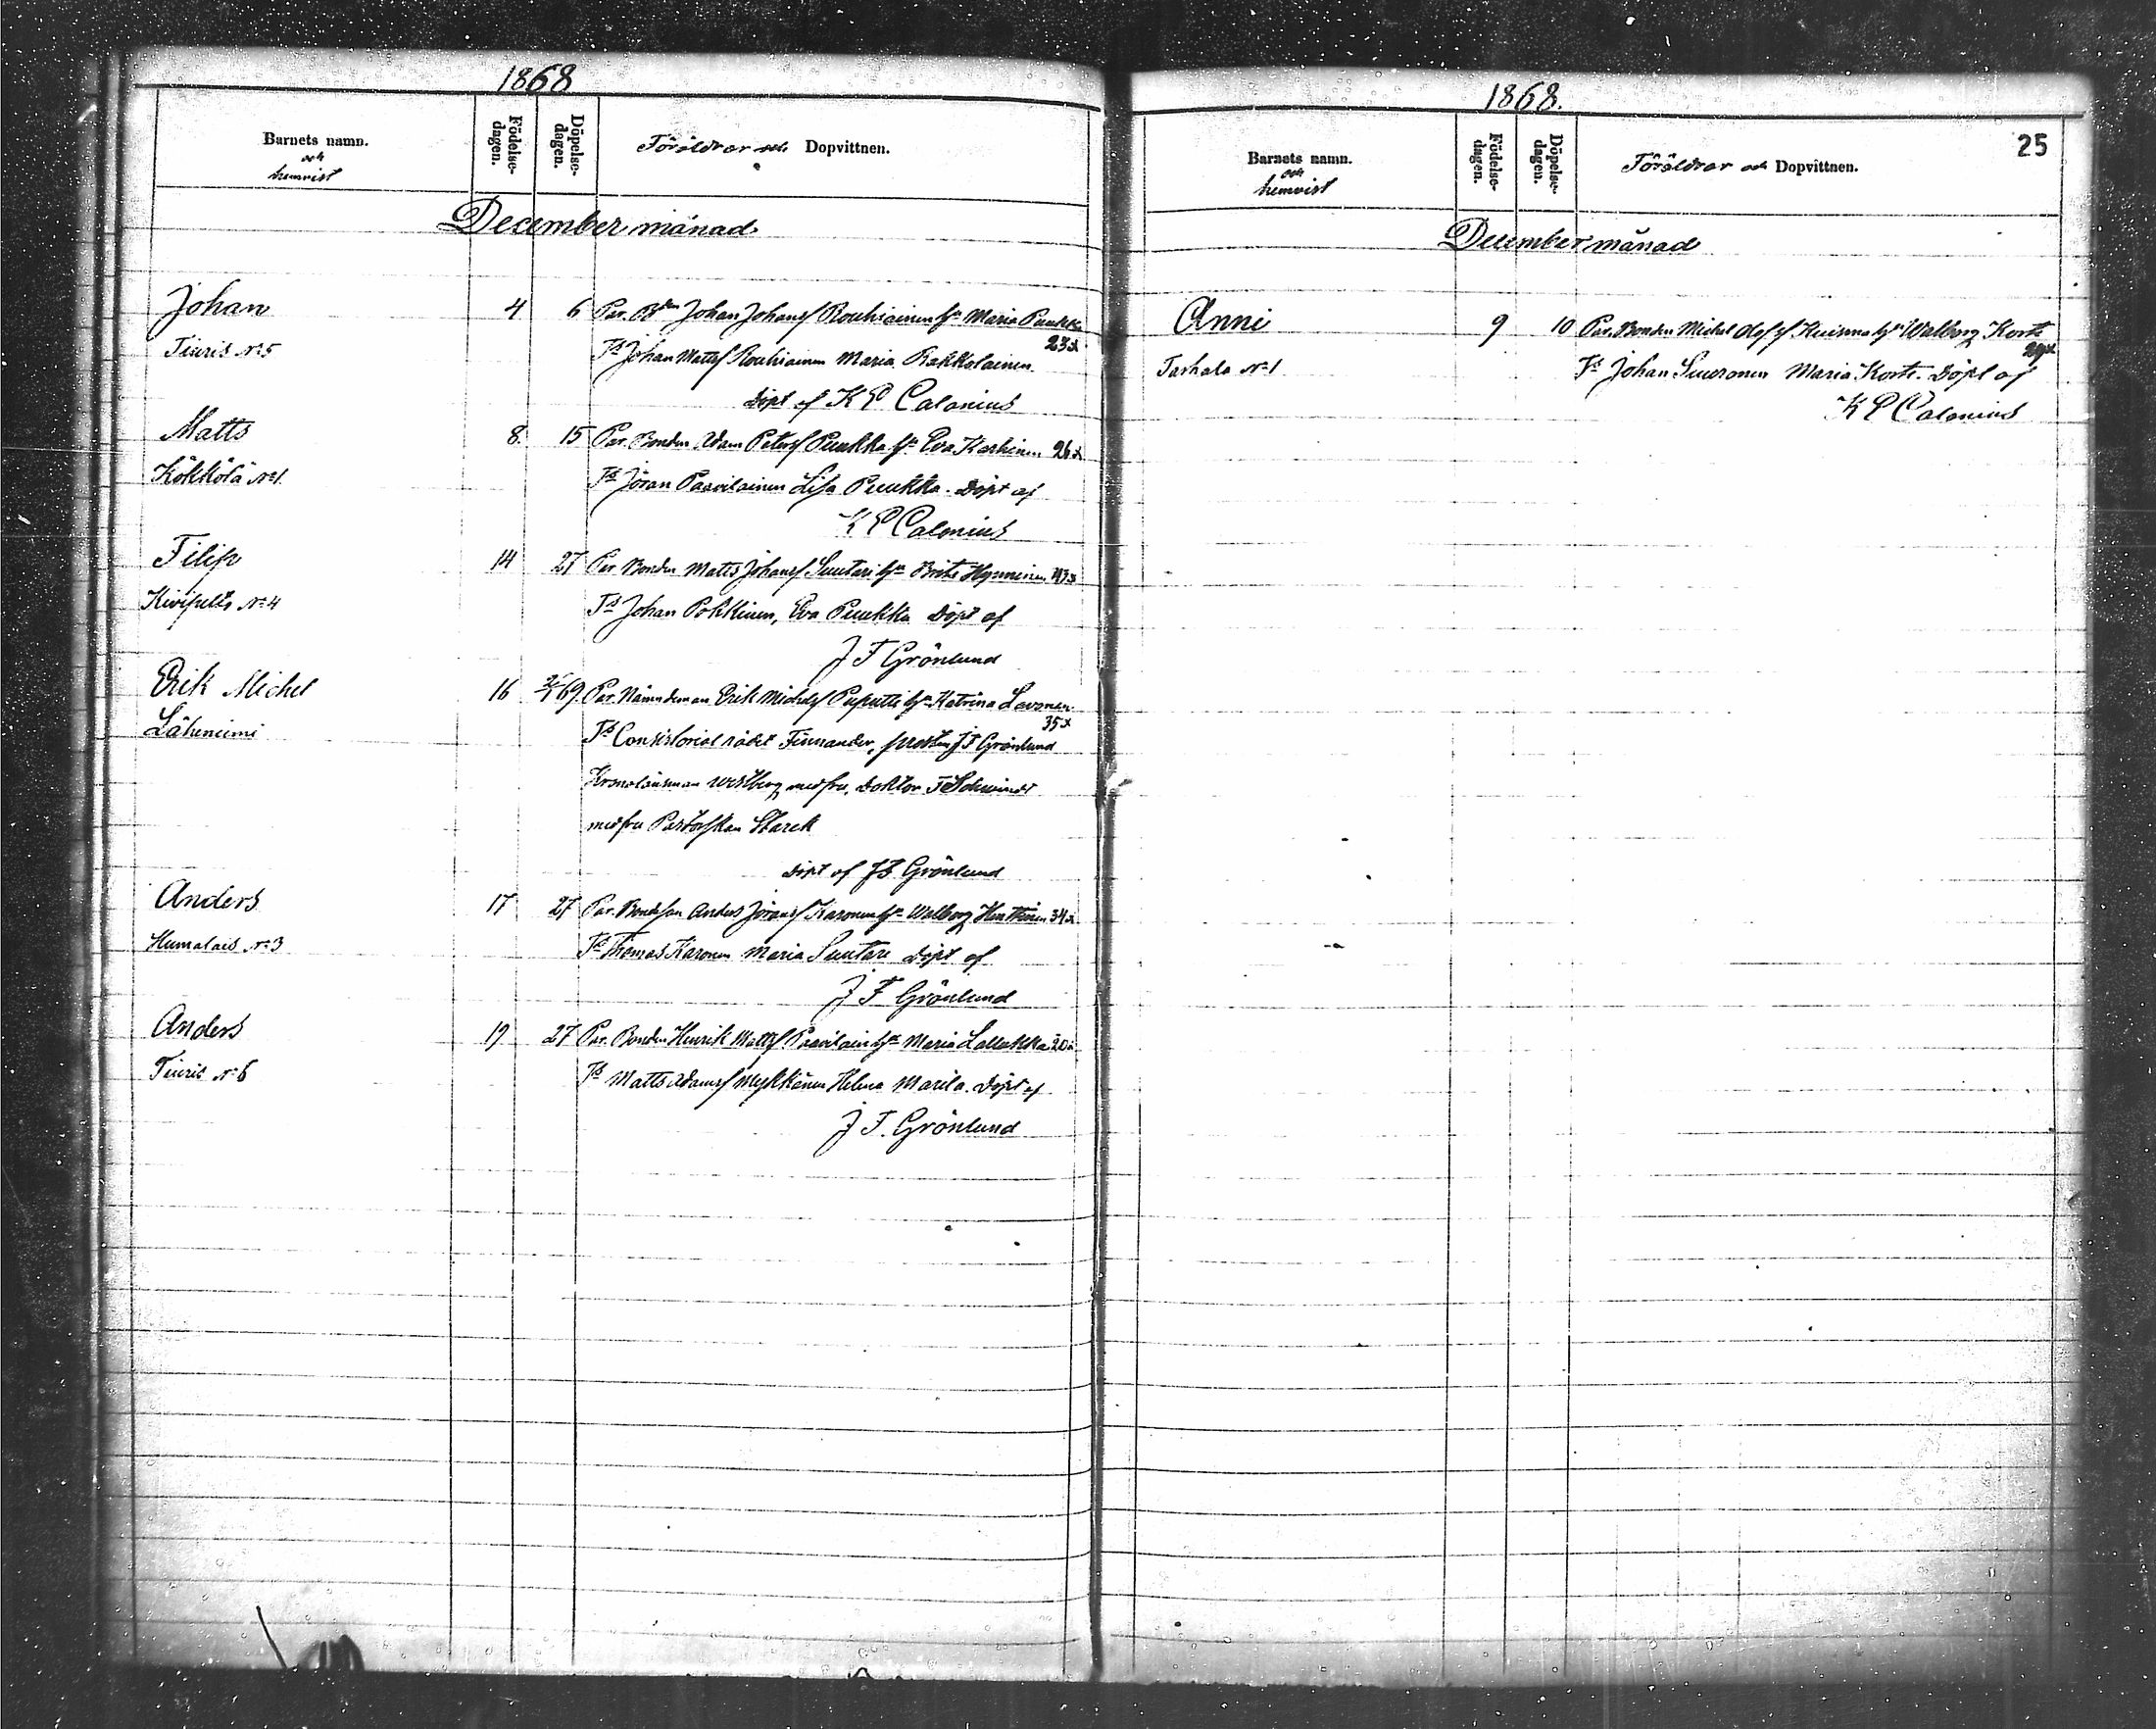 1868
Barnets namn.
och
hemvist
Födelse-
dagen.
Döpelse-
dagen.
Föräldrar och Dopvittnen.
December månad
Johan 4 6 Par. Bdn Johan Johansf Rouhiainen h. Maria Puukka
Tiuris No 5 23
Ts Johan Mattsf Rouhiainen Maria Rakkolainen.
Döpt af K P Calonius
Matts 8. 15 Par. Bonden Adam Petersf Puukka h. Eva Karhinen 26
Kökkölä No 1
Ts Jöran Paavilainen Lisa Puukka. Döpt af
K P Calonius
Filip 14 27 Par Bonden Matts Johansf Suutari h. Brita Hynninen 43
No 4
Ts Johan Pokkinen, Eva Puukka Döpt af
J F Grönlund
Erik Michel 16 69. Par. Nämndeman Erik Michelsf Puputti h. Katrina
Läheniemi 35
Ts Consistorial rådet Finnander, prosten J F Grönlund
Kronolänsman Westberg med fru, Doktor Schwindt
med fru Pastorskan Starck
Döpt af J F Grönlund
Anders 17 27 Par. Bondeson Anders Jöransf Karonen h. Walborg 34
Humalais No 3
Ts Thomas Karonen Maria Suutari Döpt af
J F Grönlund
Anders 19 27 Par. Bonden Henrik Mattsf Paavilain h. Maria Lallukka 20
Tiuris No 6
Ts Matts Adamsf Mykkänen Helena Marila. Döpt af
J F. Grönlund
1868.
25
Barnets namn.
och
hemvist
Födelse-
dagen.
Döpelse-
dagen.
Föräldrar och Dopvittnen.
December månad
Anni 9 10 Par. Bonden Michel Olofsf Kuisma h. Walborg Korte
Tarhala No 1
Ts Johan Suuronen Maria Korte. Döpt af
K P Calonius